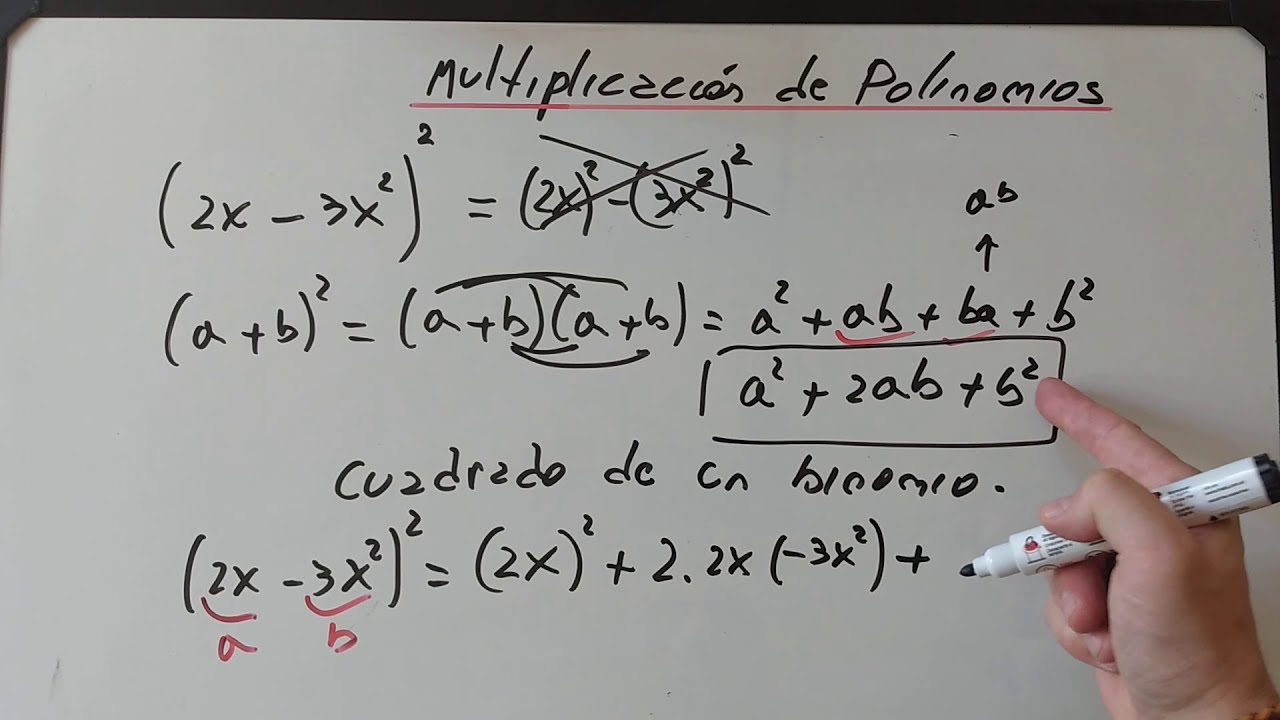 Multiplicación de Polinomios
(2x - 3x²)² = (2x)² - (3x²)²
ab
↑
(a + b)² = (a + b)(a + b) = a² + ab + ba + b²
a² + 2ab + b²
cuadrado de un binomio.
(2x - 3x²)² = (2x)² + 2. 2x (-3x²) +
a b